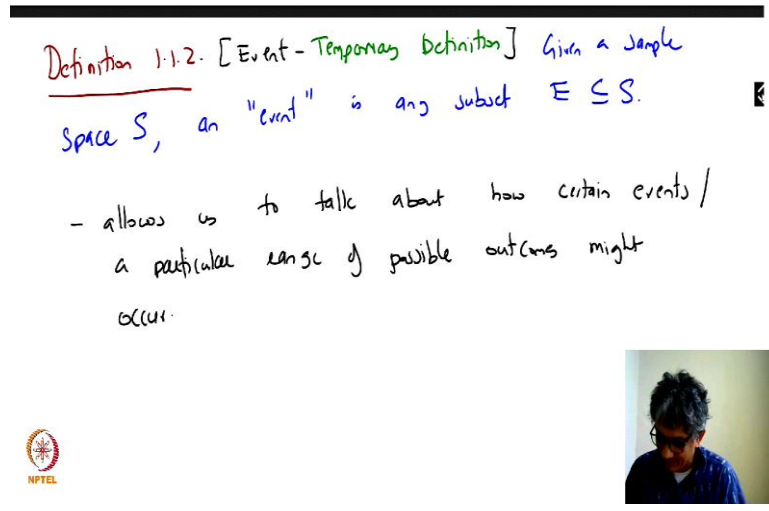 Definition 1.1.2. [Event - Temporary Definition] Given a sample
space S, an "event" is any subset E ⊆ S.
- allows us to talk about how certain events/
a particular range of possible outcomes might
occur.
NPTEL